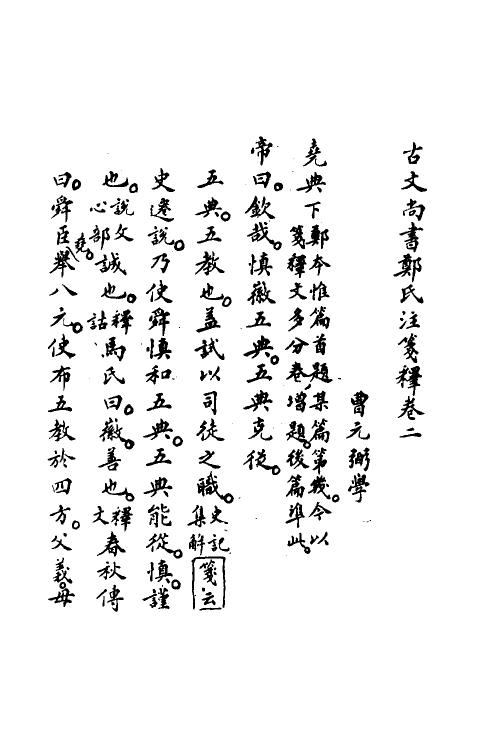 古文尚書鄭氏注箋釋卷二
曹元弼學
堯典下鄭本惟篇首題某篇第幾。今以箋釋文多分卷增題。後篇準此。
帝曰。欽哉。慎徽五典。五典克從。
五典。五教也。蓋試以司徒之職。史記集解箋云
史遷說。乃使舜慎和五典。五典能從。慎。謹
也。說文心部誠也。釋詁馬氏曰。徽。善也。釋文春秋傳
曰。舜臣堯。舉八元。使布五教於四方。父義。母